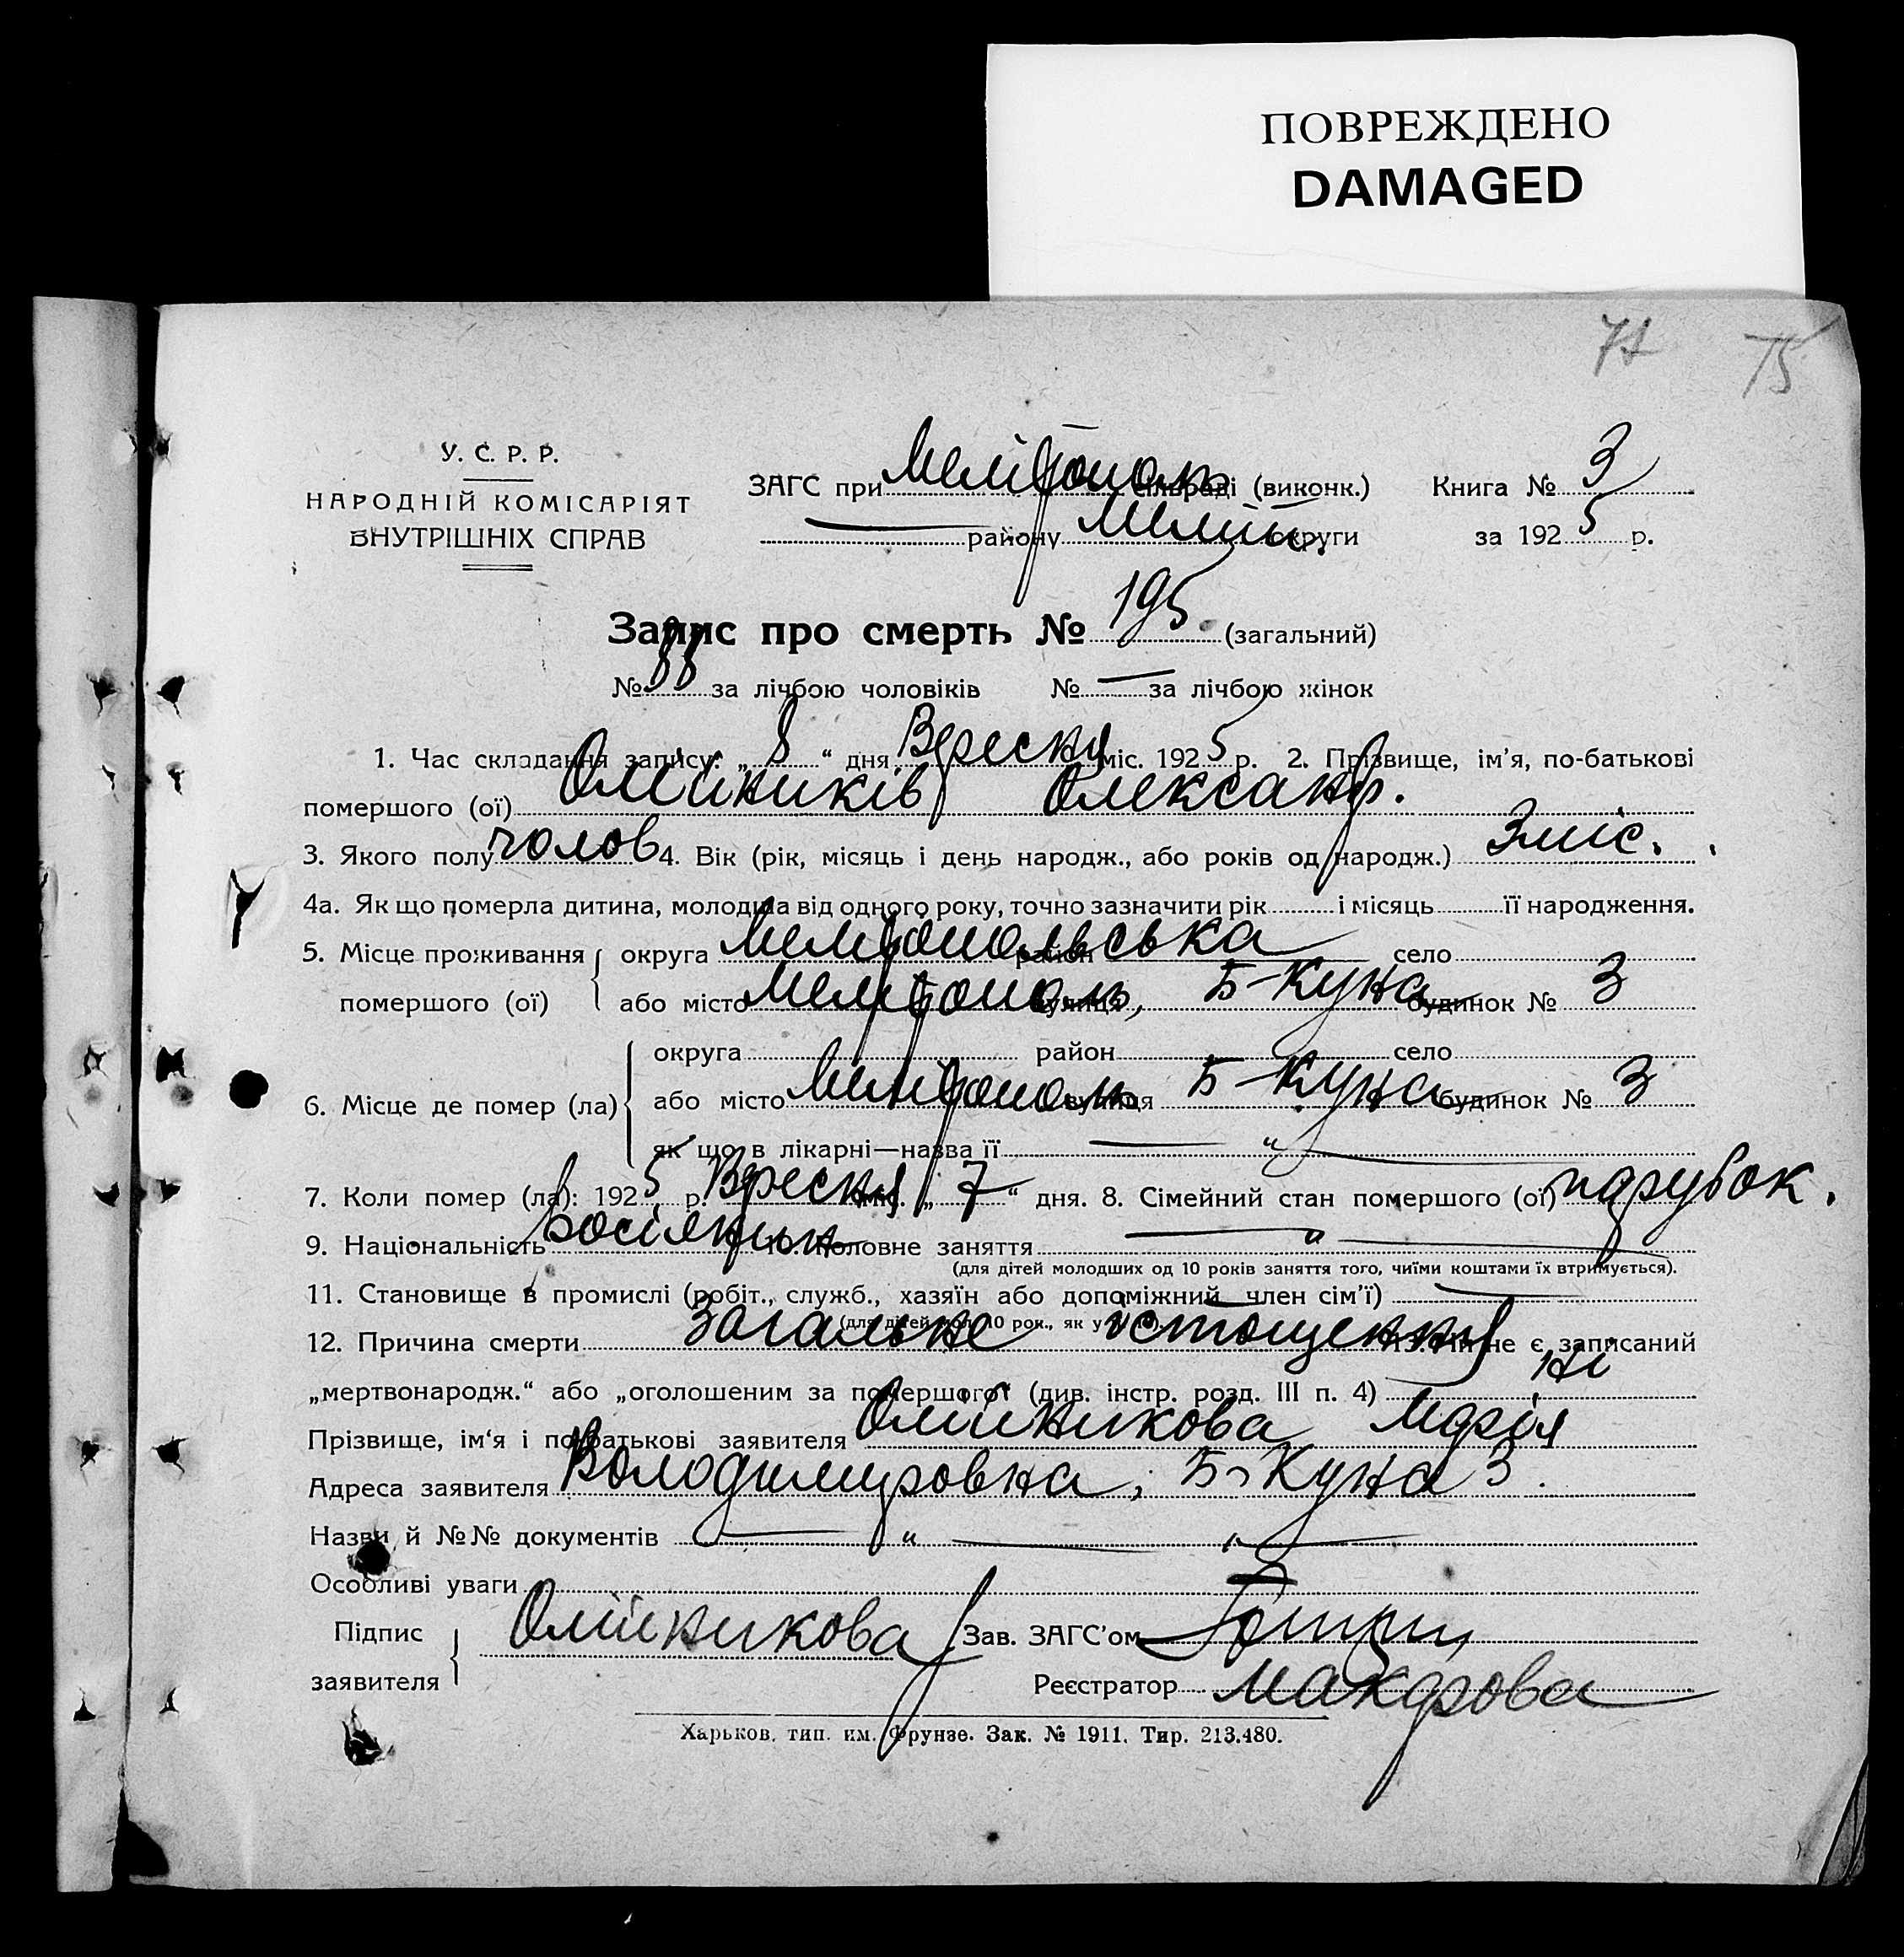 ПОВРЕЖДЕНО
DAMAGED
75
У. С. Р. Р.
НАРОДНІЙ КОМІСАРІЯТ
ВНУТРІШНІХ СПРАВ
ЗАГС при Мелітополь сільраді (виконк.) Книга № 3
району Меліт. округи за 1925 р.
Запис про смерть № 195 (загальний)
№ 88 за лічбою чоловіків № — за лічбою жінок
1. Час складання запису: „ 8 “ дня Вересня міс. 1925 р. 2. Прізвище, ім'я, по-батькові
помершого (ої) Олійників Олександр.
3. Якого полу чолов 4. Вік (рік, місяць і день народж., або років од народж.) 3 міс.
4а. Як що померла дитина, молодша від одного року, точно зазначити рік і місяць її народження.
5. Місце проживання округа Мелітопольська район — село
помершого (ої) або місто Мелітополь, вулиця Б-Куна будинок № 3
округа район село
6. Місце де помер (ла) або місто Мелітополь вулиця Б-Куна будинок № 3
як що в лікарні—назва її — „ —
7. Коли помер (ла): 1925 р. Вересня міс. „ 7 “ дня. 8. Сімейний стан помершого (ої) парубок.
9. Національність 10. Головне заняття — „ —
(для дітей молодших од 10 років заняття того, чиїми коштами їх втримується).
11. Становище в промислі (робіт., служб., хазяїн або допоміжний член сім'ї) —
(для дітей мол. 10 рок., як у
12. Причина смерти Загальне істощення 13. Чи не є записаний
„мертвонародж.“ або „оголошеним за помершого“ (див. інстр. розд. III п. 4) Ні
Прізвище, ім'я і по-батькові заявителя Олійникова Марія
Адреса заявителя Володимировна, Б-Куна 3.
Назви й №№ документів — „ — „ —
Особливі уваги —
Підпис заявителя Олійникова Зав. ЗАГС'ом
Реєстратор Макарова
Харьков, тип. им. Фрунзе. Зак. № 1911. Тир. 213.480.